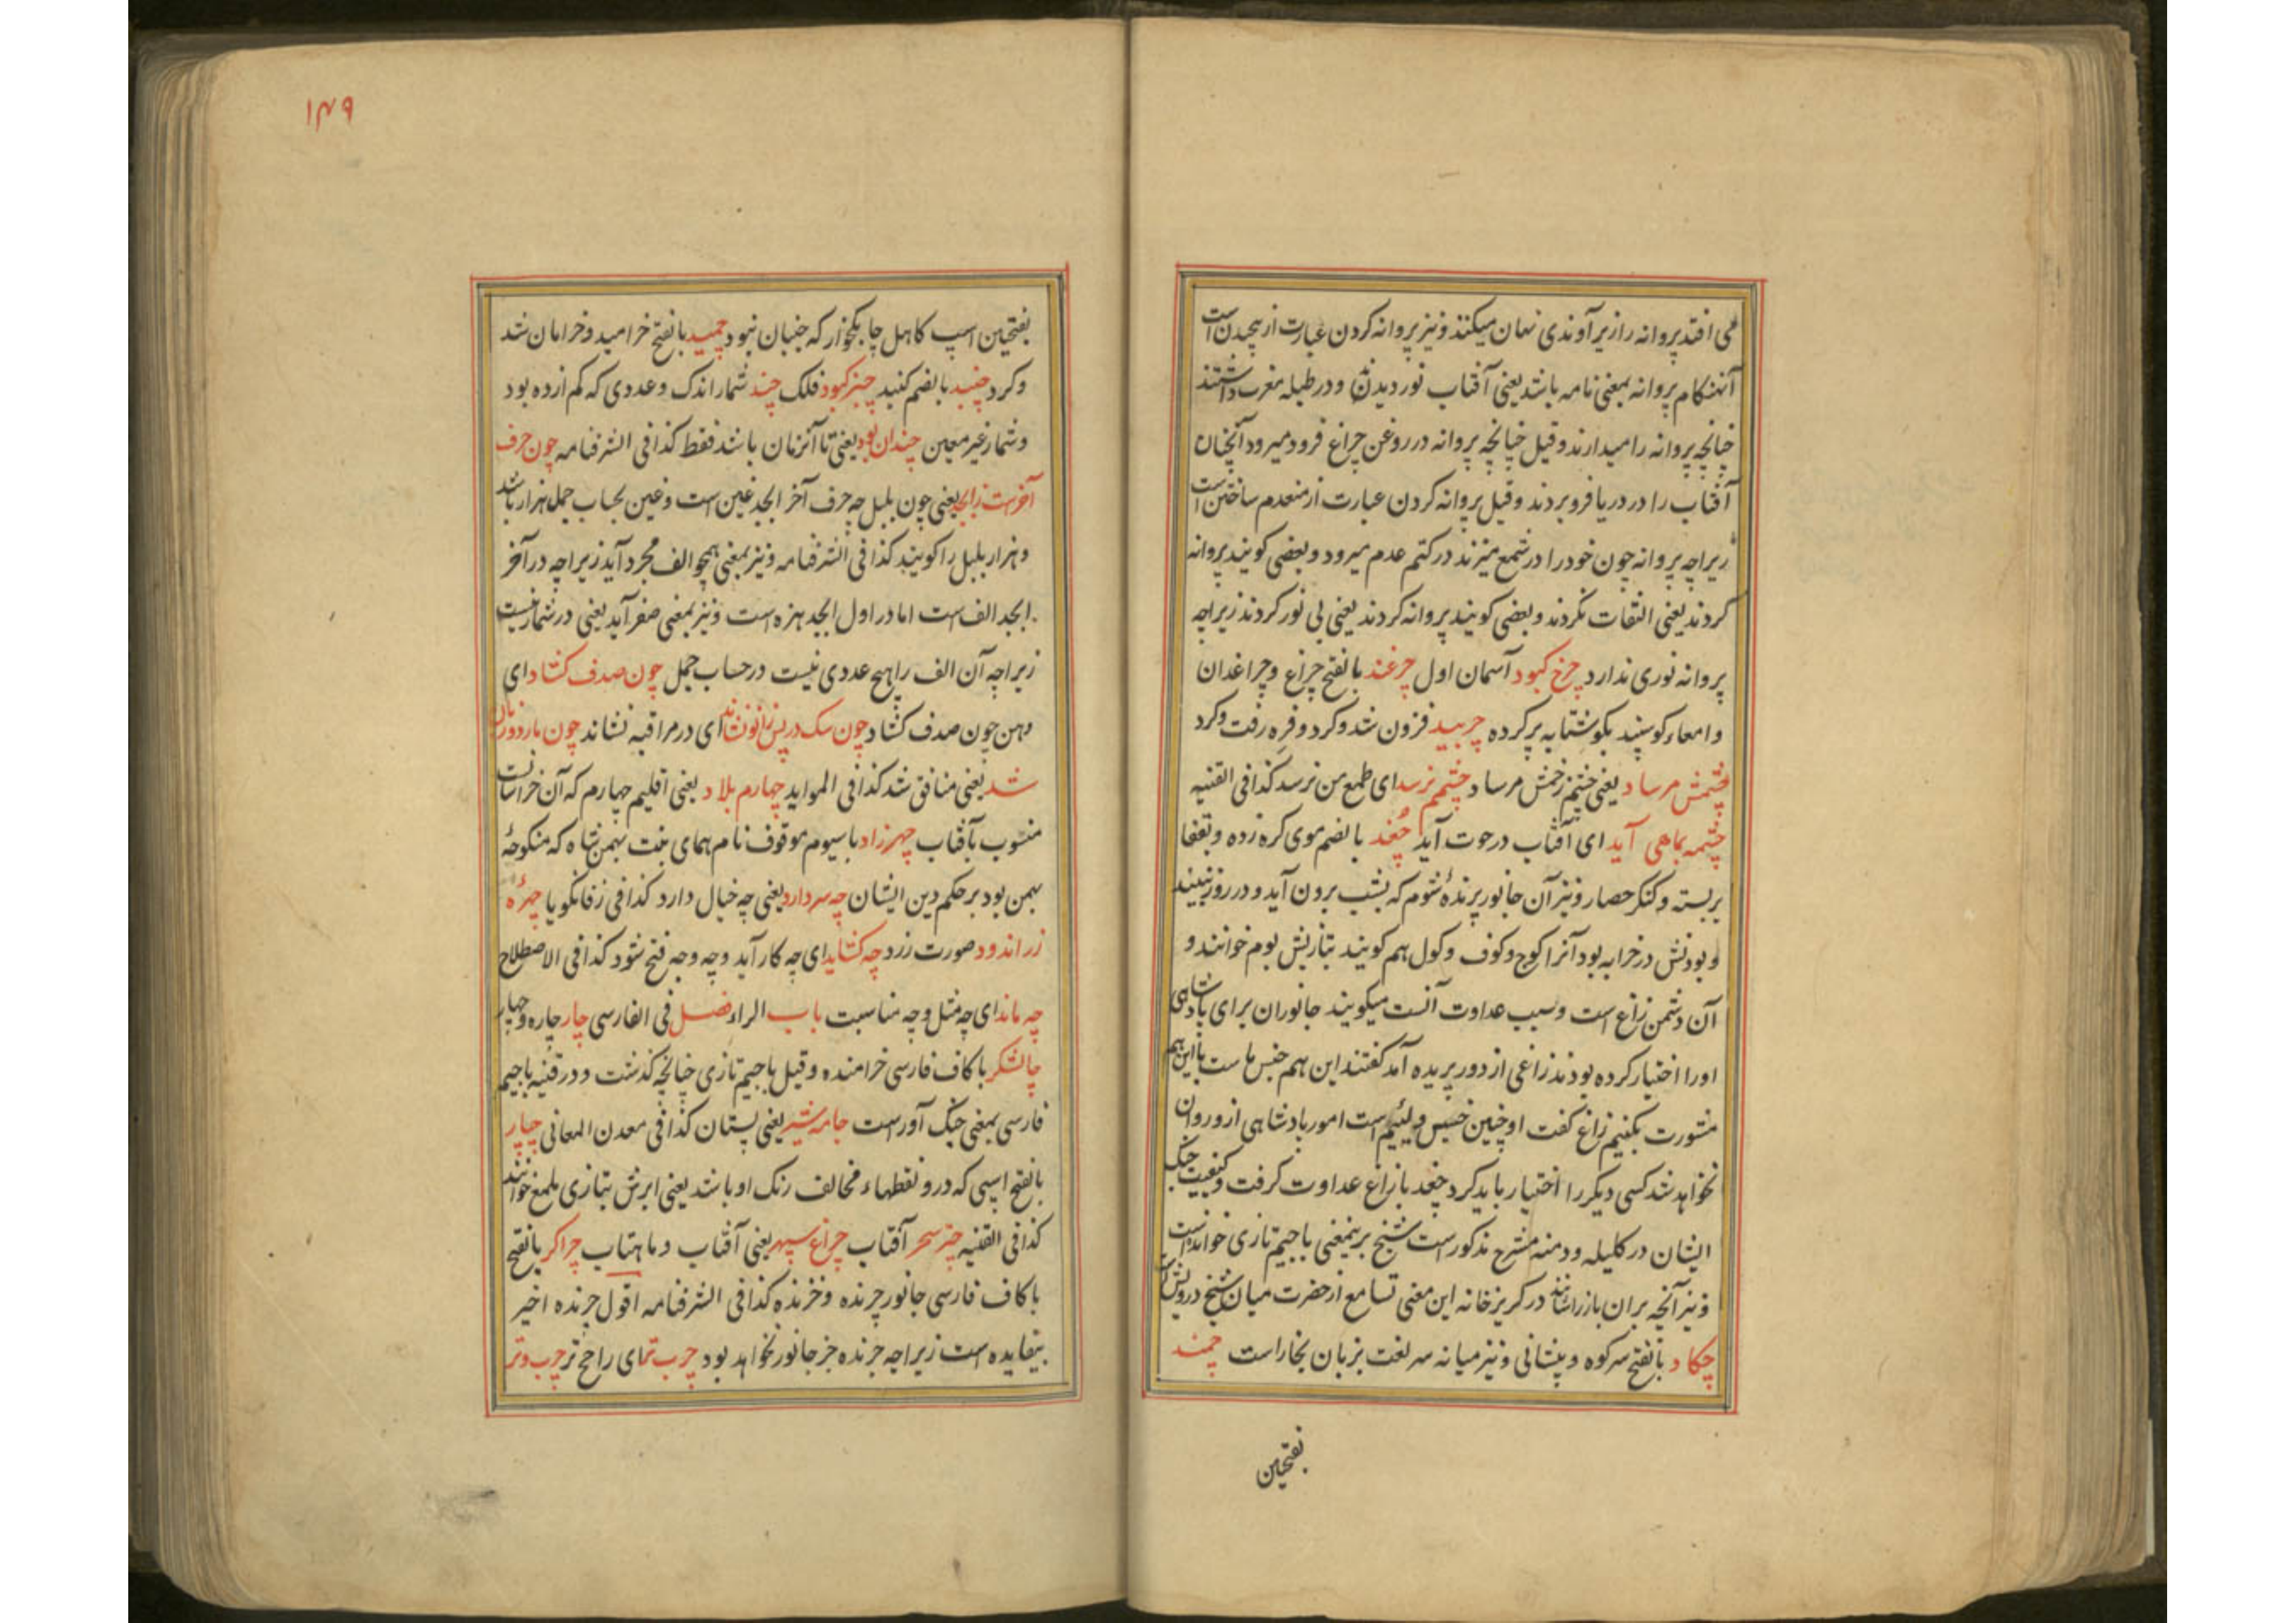 می افتد پروانه را زیر آوندی نهان میکنند و نیز پروانه کردن عبارت از پیچیدن است
آنهنکام پروانه بمعنی نامه باشد یعنی آفتاب نوردیدند و در طبله مغرب داشتند
چنانچه پروانه را میدارند و قیل چنانچه پروانه در روغن چراغ فرود میرود آنچنان
آفتاب را در دریا فرو بردند و قیل پروانه کردن عبارت از منعدم ساختن است
زیراچه پروانه چون خود را در شمع میزند در کتم عدم میرود و بعضی کویند پروانه
کردند یعنی التفات نکردند و بعضی کویند پروانه کردند یعنی بی نور کردند زیراچه
پروانه نوری ندارد چرخ کبود آسمان اول چرغند بالفتح چراغ و چراغدان
و امعاء کوسپند بکوشتابه پر کرده چربید فزون شد و کرد و فره رفت و کرد
چشمش مرساد یعنی چشم زخمش مرساد چشمم نرسد ای طمع من نرسد کذا فی القنیه
چشمه بماهی آید ای آفتاب در حوت آید چغند بالضم موی کره زده و بقفا
بربسته و کنکر حصار و نیز آن جانور پرنده شوم که بشب برون آید و در روز نبیند
و بودنش در خرابه بود آنرا کوچ و کوف و کول هم کویند بتازیش بوم خوانند و
آن دشمن زاغ است و سبب عداوت آنست میکویند جانوران برای پادشاهی
او را اختیار کرده بودند زاغی از دور پریده آمد کفتند این هم جنس ماست با این هم
مشورت بکنیم زاغ کفت او چنین خسیس و لئیم است امور پادشاهی ازو روان
نخواهد شد کسی دیکر را اختیار باید کرد چغد با زاغ عداوت کرفت و کیفیت جنک
ایشان در کلیله و دمنه مشرح مذکور است شیخ برینمعنی باجیم تازی خوانده است
و نیز آنچه بران باز را نشانند در کریزخانه این معنی تسامع از حضرت میان شیخ درویش
چکاد بالفتح سر کوه و پیشانی و نیز میانه سر لغت بزبان بخارا است چمند
بفتحین
۱۴۹
بفتحین اسپ کاهل چابکخوار که جنبان نبود چمید بالفتح خرامید و خرامان شد
و کرد چنبد بالضم کنبد چنبر کبود فلک چند شمار اندک و عددی که کم از ده بود
و شمار غیر معین چندان بود یعنی تا آنزمان باشد فقط کذا فی الشرفنامه چون حرف
آخرست ز ابجد یعنی چون بلبل چه حرف آخر ابجد غین است و غین بحساب جمل هزار باشد
و هزار بلبل را کویند کذا فی الشرفنامه و نیز بمعنی همچو الف مجرد آید زیراچه در آخر
ابجد الف است اما در اول ابجد همزه است و نیز بمعنی صفر آید یعنی در شمار نیست
زیراچه آن الف را هیچ عددی نیست در حساب جمل چون صدف کشاد ای
دهن چون صدف کشاد چون سک در پس زانو نشاند ای در مراقبه نشاند چون مار دو زبان
شد یعنی منافق شد کذا فی المواید چهارم بلاد یعنی اقلیم چهارم که آن خراسانست
منسوب بآفتاب چهرزاد با سیوم موقوف نام همای بنت بهمن شاه که منکوحه
بهمن بود بر حکم دین ایشان چه سر دارد یعنی چه خیال دارد کذا فی زفانکویا چهره
زراندود صورت زرد چه کشاید ای چه کار آید و چه وجه فتح شود کذا فی الاصطلاح
چه ماند ای چه مثل و چه مناسبت باب الراء فصل فی الفارسی چار چاره و چهار
چالشکر با کاف فارسی خرامنده و قیل باجیم تازی چنانچه کذشت و در قنیه باجیم
فارسی بمعنی جنک آور است جامه شیر یعنی پستان کذا فی معدن المعانی چپار
بالفتح اسپی که درو نقطهاء مخالف رنک او باشد یعنی ابرش بتازی ملمع خوانند
کذا فی القنیه چتر سحر آفتاب چراغ سپهر یعنی آفتاب و ماهتاب چراکر بالفتح
با کاف فارسی جانور چرنده و خرنده کذا فی الشرفنامه اقول چرنده اخیر
بیفایده است زیراچه چرنده جز جانور نخواهد بود چرب تر ای راجح تر چرب و تر